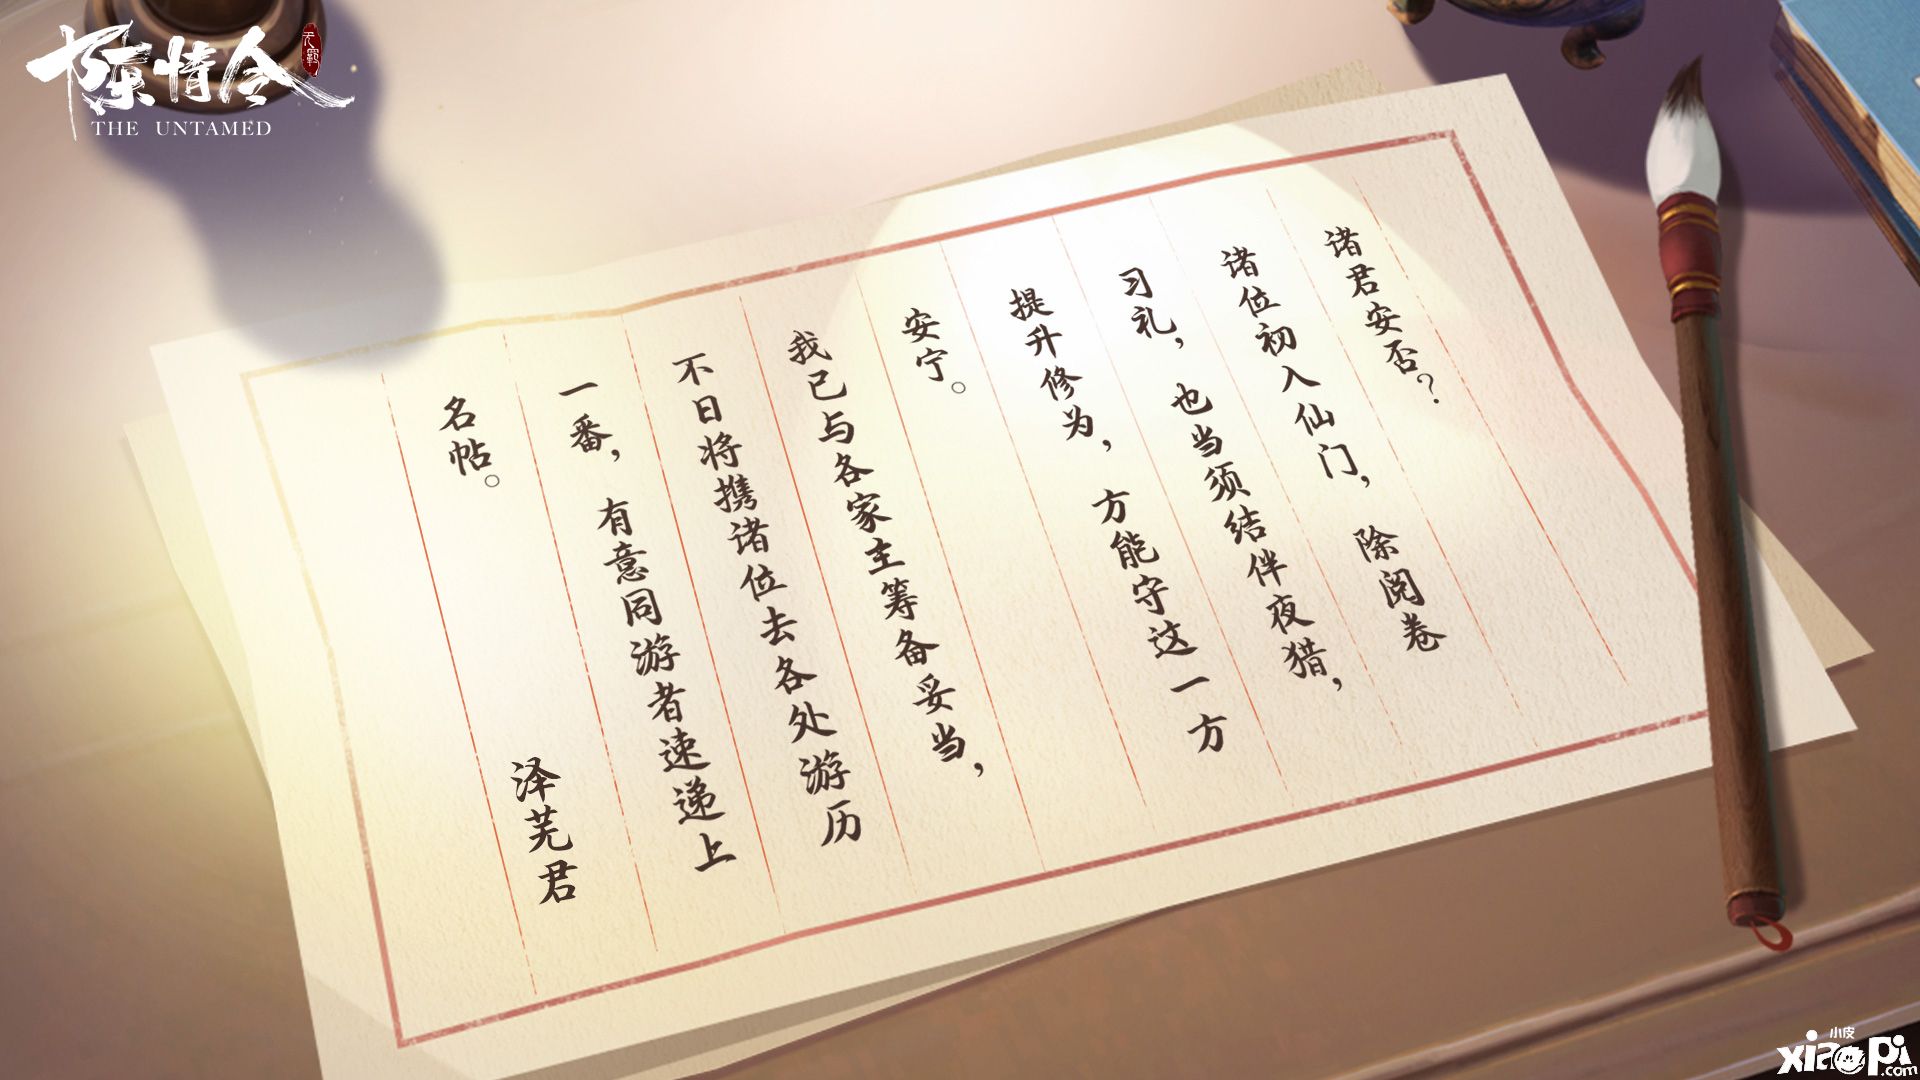 陈情令
THE UNTAMED
诸君安否？
诸位初入仙门，除阅卷
习礼，也当须结伴夜猎，
提升修为，方能守这一方
安宁。
我已与各家主筹备妥当，
不日将携诸位去各处游历
一番，有意同游者速递上
名帖。
泽芜君
小皮
xiaopi
.com